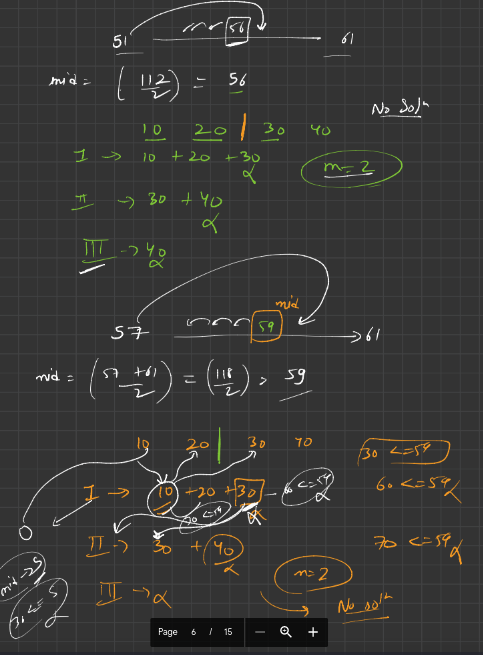 51 56 61
mid = (112/2) = 56
No Solⁿ
10 20 | 30 40
I → 10 + 20 + 30
α
m = 2
II → 30 + 40
α
III → 40
α
mid
57 59 → 61
mid = (57 + 61 / 2) = (118/2) > 59
10 20 | 30 40
30 <= 59
I → 10 + 20 + 30
60 <= 59 α
60 <= 59 α
II → 30 + 40
α
70 <= 59 α
III → α
m = 2
No Solⁿ
Page 6 / 15